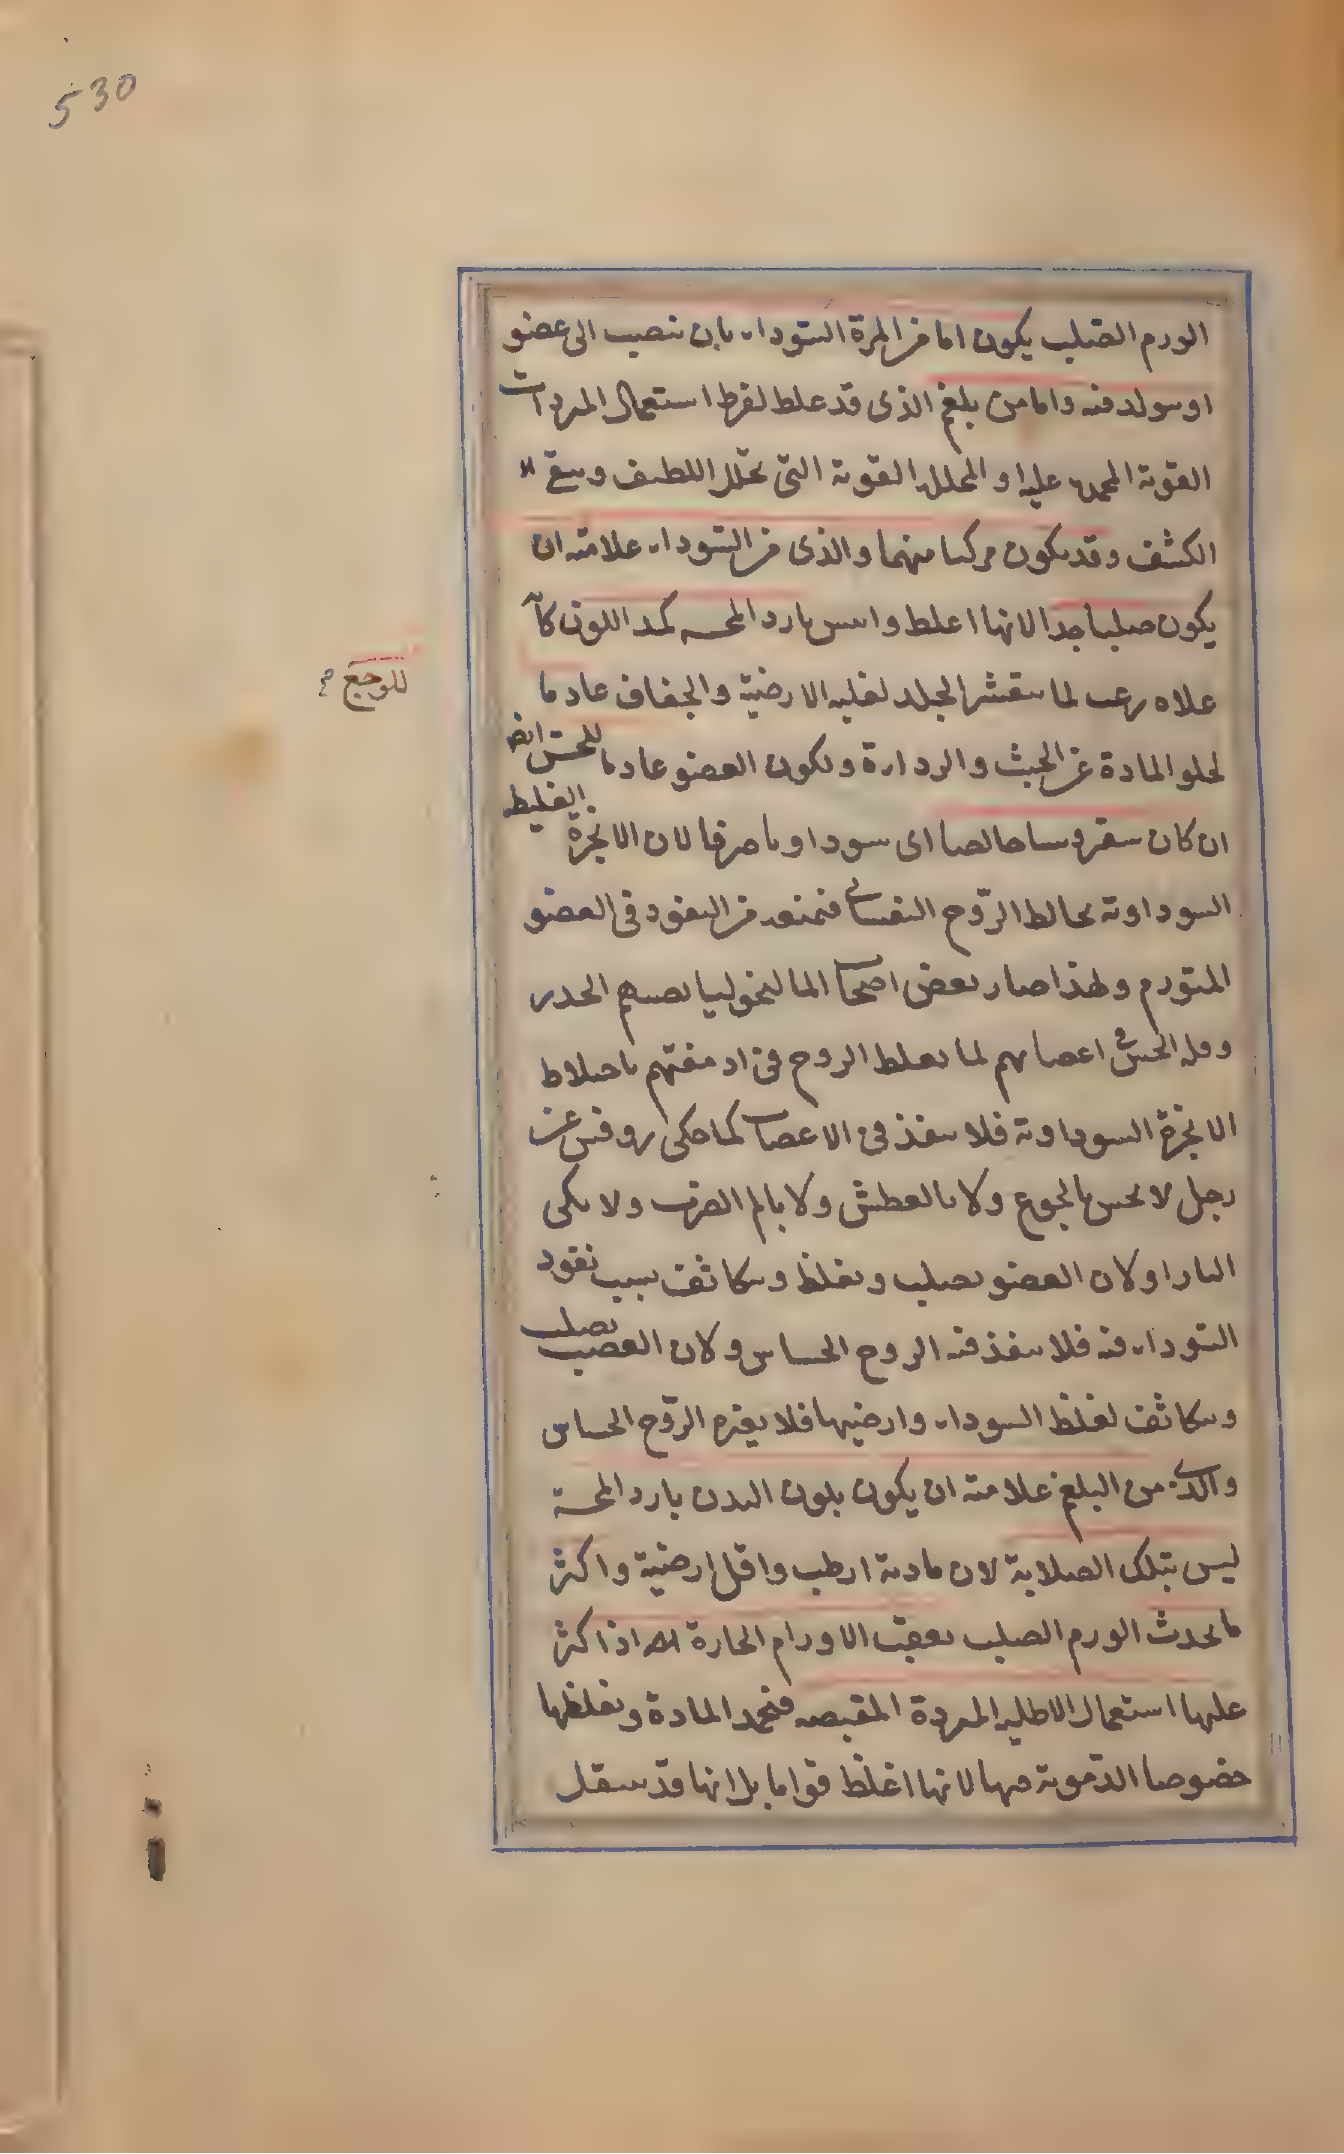 530
الورم الصلب يكون اما من المرة السوداء بان تنصب الى عضو
او يتولد فيه واما من بلغم الذى قد غلظ لفرط استعمال المبردات
القوية المجمدة عليه او المحللة القوية التى تحلل اللطيف ويبقى
الكثيف وقد يكون مركبا منهما والذى من السوداء علامته ان
يكون صلبا جدا لانها اغلظ وايبس بارد المجسة كمد اللون كأنه
علاه زغب لما يتقشر الجلد لغلبة الارضية والجفاف عادما
للوجع
لخلو المادة عن الخبث والرداءة ويكون العضو عادما للحس ايض
ان كان سقيروسا خالصا اى سوداويا صرفا لان الابخرة الغليظ
السوداوية يخالط الروح النفسانى فتمنعه من النفوذ فى العضو
المتورم ولهذا صار بعض اصحاب الماليخوليا يصيبهم الخدر
وقلة الحس فى اعصابهم لما يغلظ الروح فى ادمغتهم باختلاط
الابخرة السوداوية فلا ينفذ فى الاعصاب كما حكى روفس عن
رجل لا يحس بالجوع ولا بالعطش ولا بالم الضرب ولا بكى
النار او لان العضو يصلب ويغلظ ويتكاثف بسبب نفوذ
السوداء فيه فلا ينفذ فيه الروح الحساس ولان العصب يصلب
ويتكاثف لغلظ السوداء وارضيتها فلا الروح الحساس
والذى من البلغم علامته ان يكون بلون البدن بارد المجسة
ليس بتلك الصلابة لان مادته ارطب واقل ارضية واكثر
ما يحدث الورم الصلب بعقب الاورام الحارة اذا كثر
عليها استعمال الاطلية المبردة المقبضة فتجمد المادة وتغلظها
خصوصا الدموية منها لانها اغلظ قواما بل انها قد ينتقل